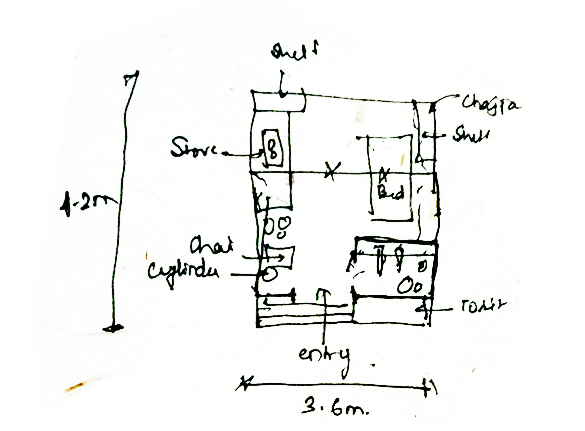 shelf
Chajja
Shelf
Stove
4.2m
Bed
Chai
Cylinder
Toilet
entry
3.6m.